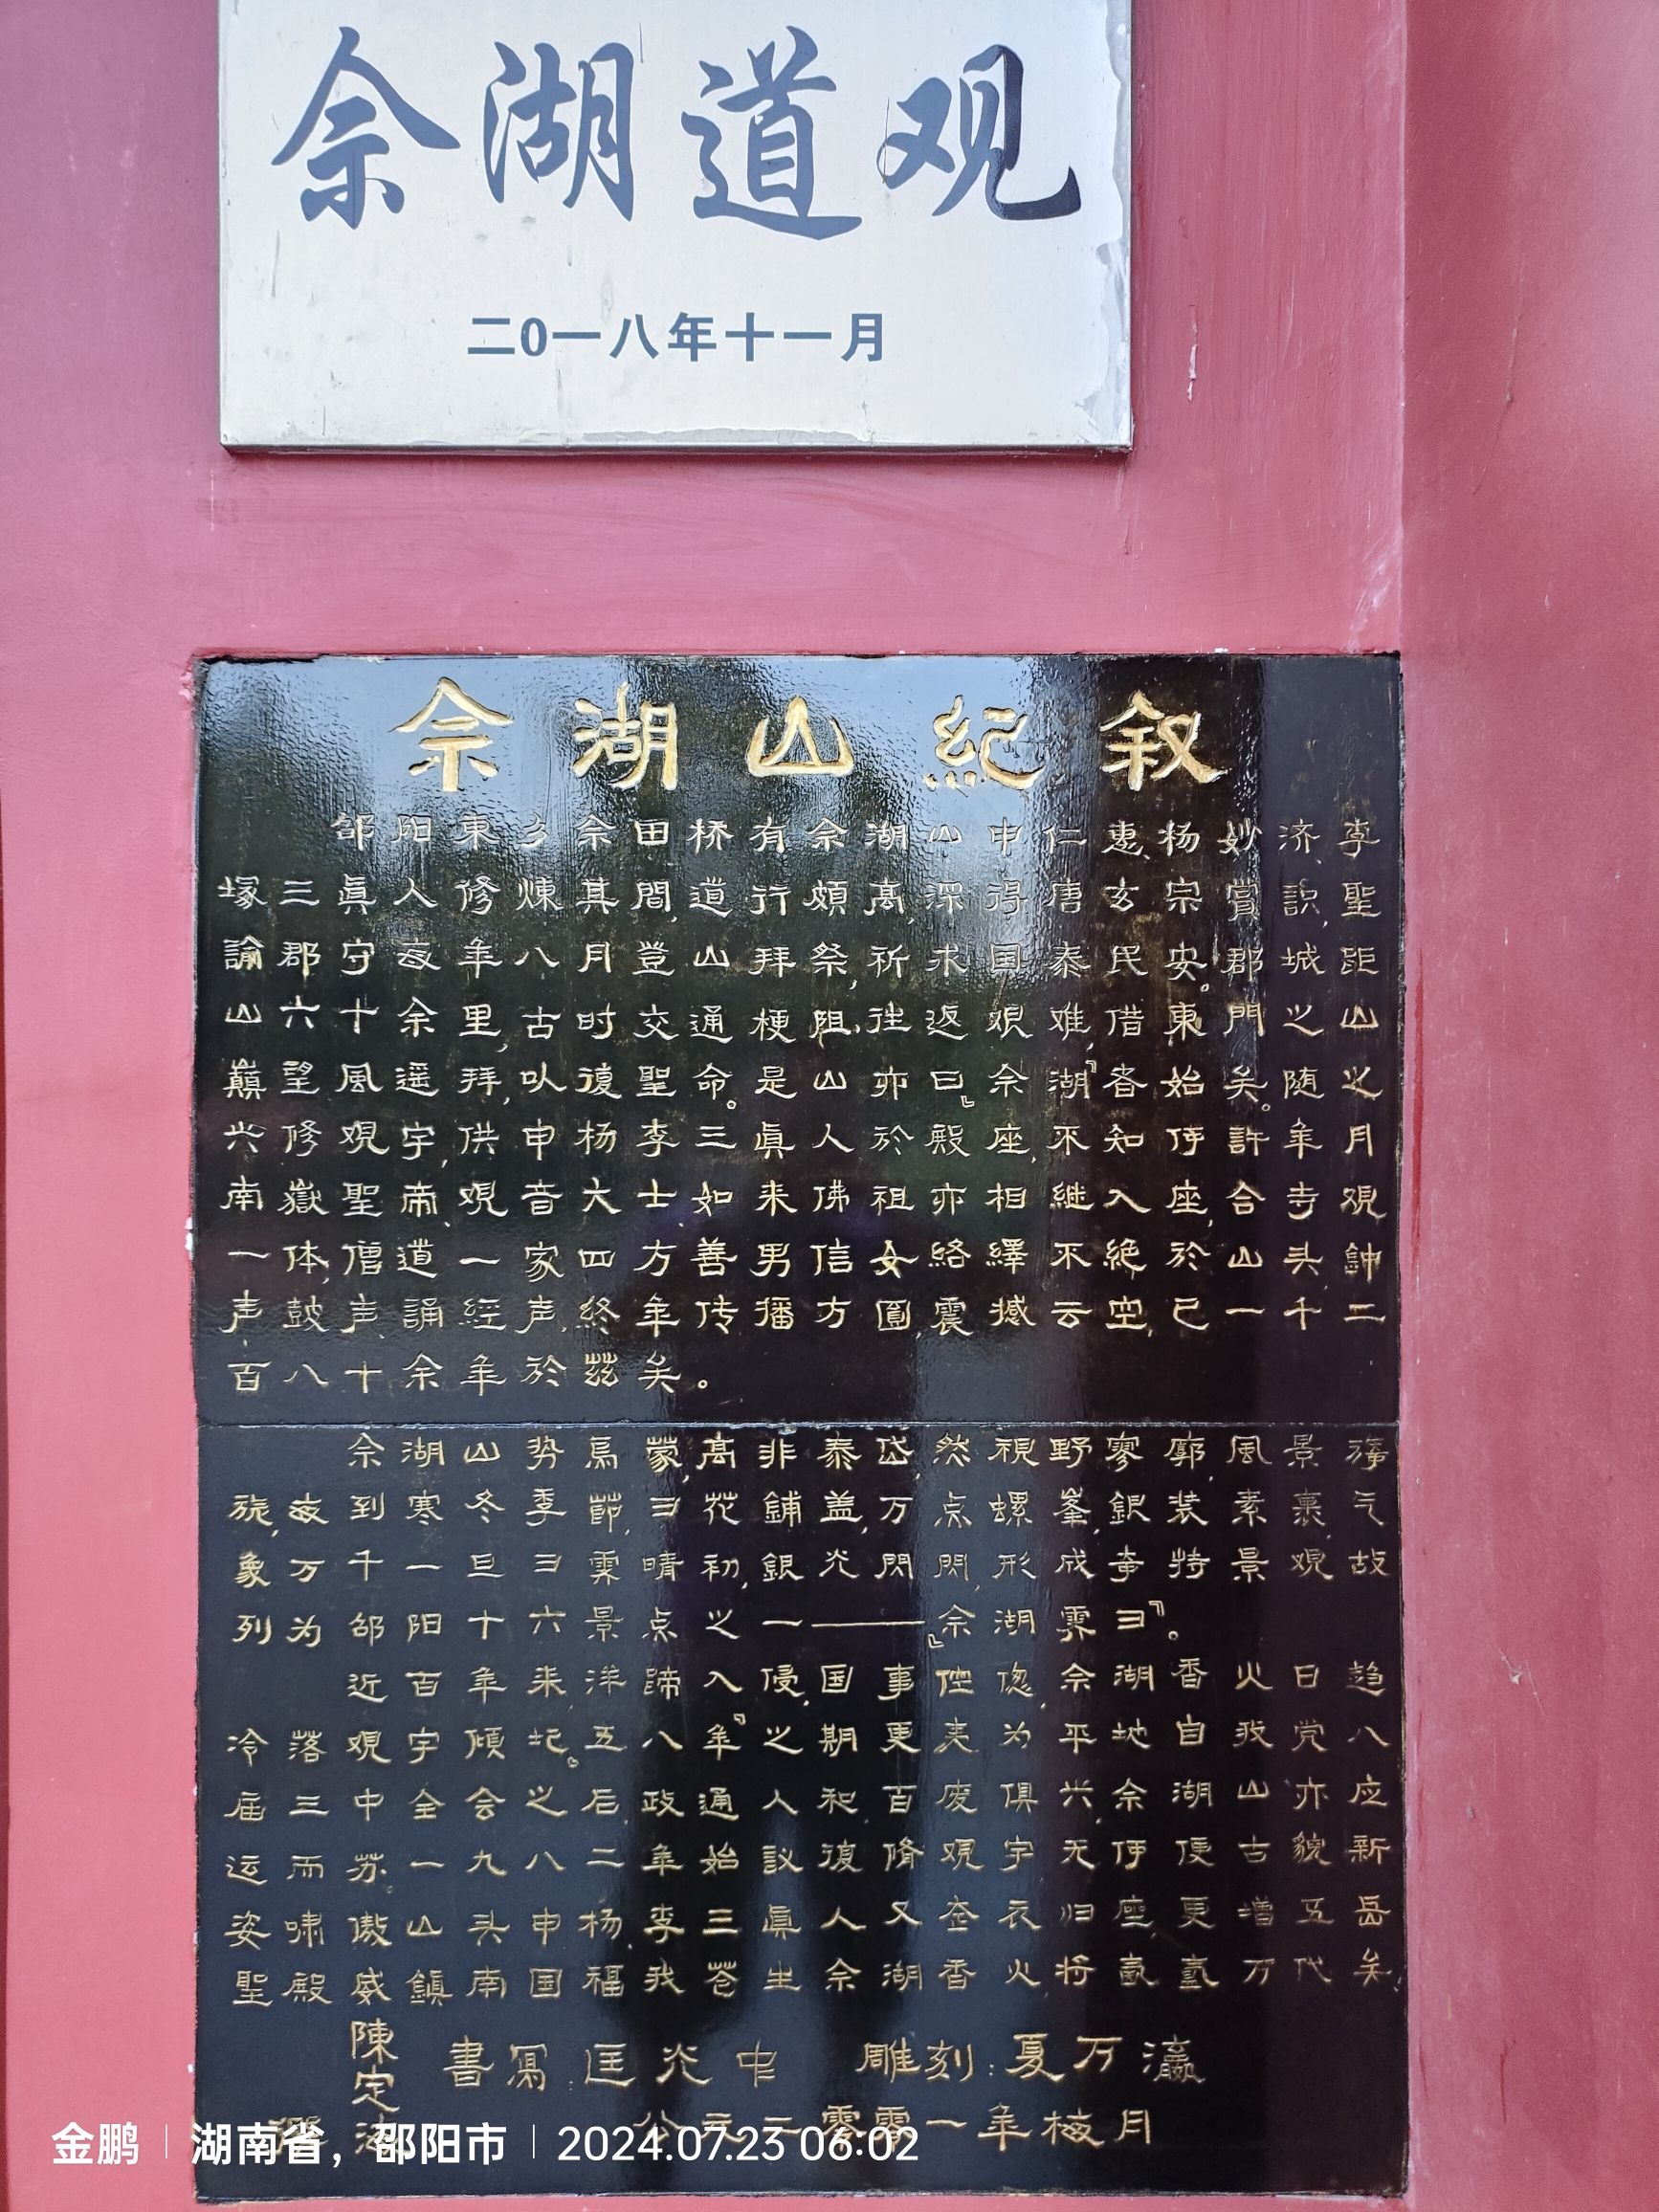 佘湖道观
二0一八年十一月
佘湖山紀叙
邵阳東乡佘田桥有佘湖山,申仁惠、杨妙济、李
塚三眞人修煉其間,道行頗高,深得唐玄宗賞識,聖
諭郡守每年八月登山祭祈,求国泰民安。郡城距
山六十余里,古时交通梗阻,往返艰难,借東門之山
巔望風遥拜,以復聖命。是山亦曰『佘湖』者始矣。随之
兴修观宇,供申杨李三眞人於殿座,不知停許年月
南嶽聖帝、观音大士、如来佛祖亦相继入座,合寺观
一体,僧道一家四方善男信女絡繹不絶於山头鈡
声鼓声誦經声,終年传播方圓震撼云空,已一千二
百八十余年於茲矣。
佘湖山势焉蒙,高非泰岱,然視野寥廓,風景
旎,故到寒冬季節,ヨ花鋪盖,万点螺峯,銀装素裹,气
象万千一旦ヨ霁晴初,銀光閃閃,形成奇特景观故
列为邵阳十六景点之一——『佘湖霁ヨ』。
近百年来,洋蹄入侵,国事倥傯,佘湖香火日趋
冷落观宇傾圮。五八年『之期更夷为平地自我党八
届三中全会之后,政通人和,百废俱兴,佘湖山亦应
运而苏。一九八二年始议復脩观宇无停便古貌新
姿啸傲山头申杨、李三眞人又 衣归座,更增五岳
聖殿威鎮南国福我苍生佘湖香火将氤氲万代矣.
陳定
書寫:匡炎中 雕刻:夏万瀛
公元二零零一年梅月
金鹏 湖南省，邵阳市 2024.07.23 06:02